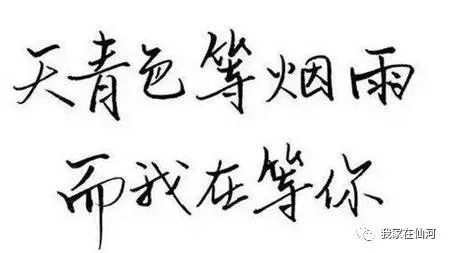 天青色等烟雨
而我在等你
我家在仙河